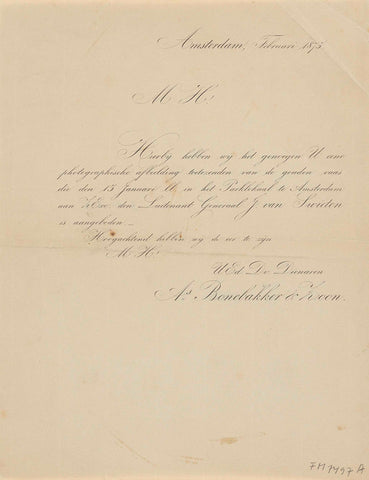 Amsterdam, Februari 1875.
M H!
Hierbij hebben wij het genoegen U eene
photographische afbeelding toetezenden van de gouden vaas
die den 15 Januari ll. in het Parklokaal te Amsterdam
aan Z.Exc. den Lieutenant Generaal J. van Swieten
is aangeboden.–
Hoogachtend hebben wij de eer te zijn
M H!
UEd. Dw. Dienaren
As. Bonebakker & Zoon.
FM 7497 A